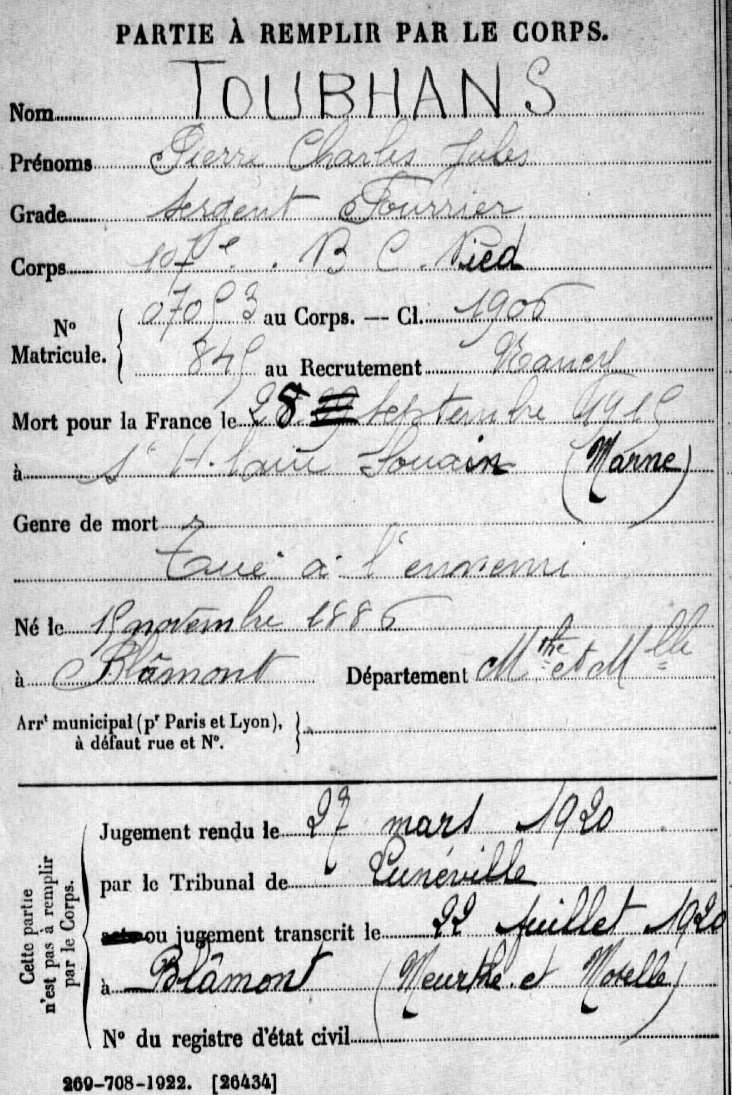 PARTIE À REMPLIR PAR LE CORPS.
Nom TOUBHANS
Prénoms Pierre Charles Jules
Grade Sergent Fourrier
Corps 107e. B C. Pied
N° Matricule. 07053 au Corps. — Cl. 1906
845 au Recrutement Nancy
Mort pour la France le 28 Septembre 1915
à St Hilaire Souain (Marne)
Genre de mort
Tué à l'ennemi
Né le 15 novembre 1886
à Blâmont Département Mrthe et Mlle
Arrt municipal (pr Paris et Lyon),
à défaut rue et N°.
Cette partie n'est pas à remplir par le Corps.
Jugement rendu le 27 mars 1920
par le Tribunal de Lunéville
ou jugement transcrit le 22 juillet 1920
à Blâmont (Meurthe et Moselle)
N° du registre d'état civil
269-708-1922. [26434]